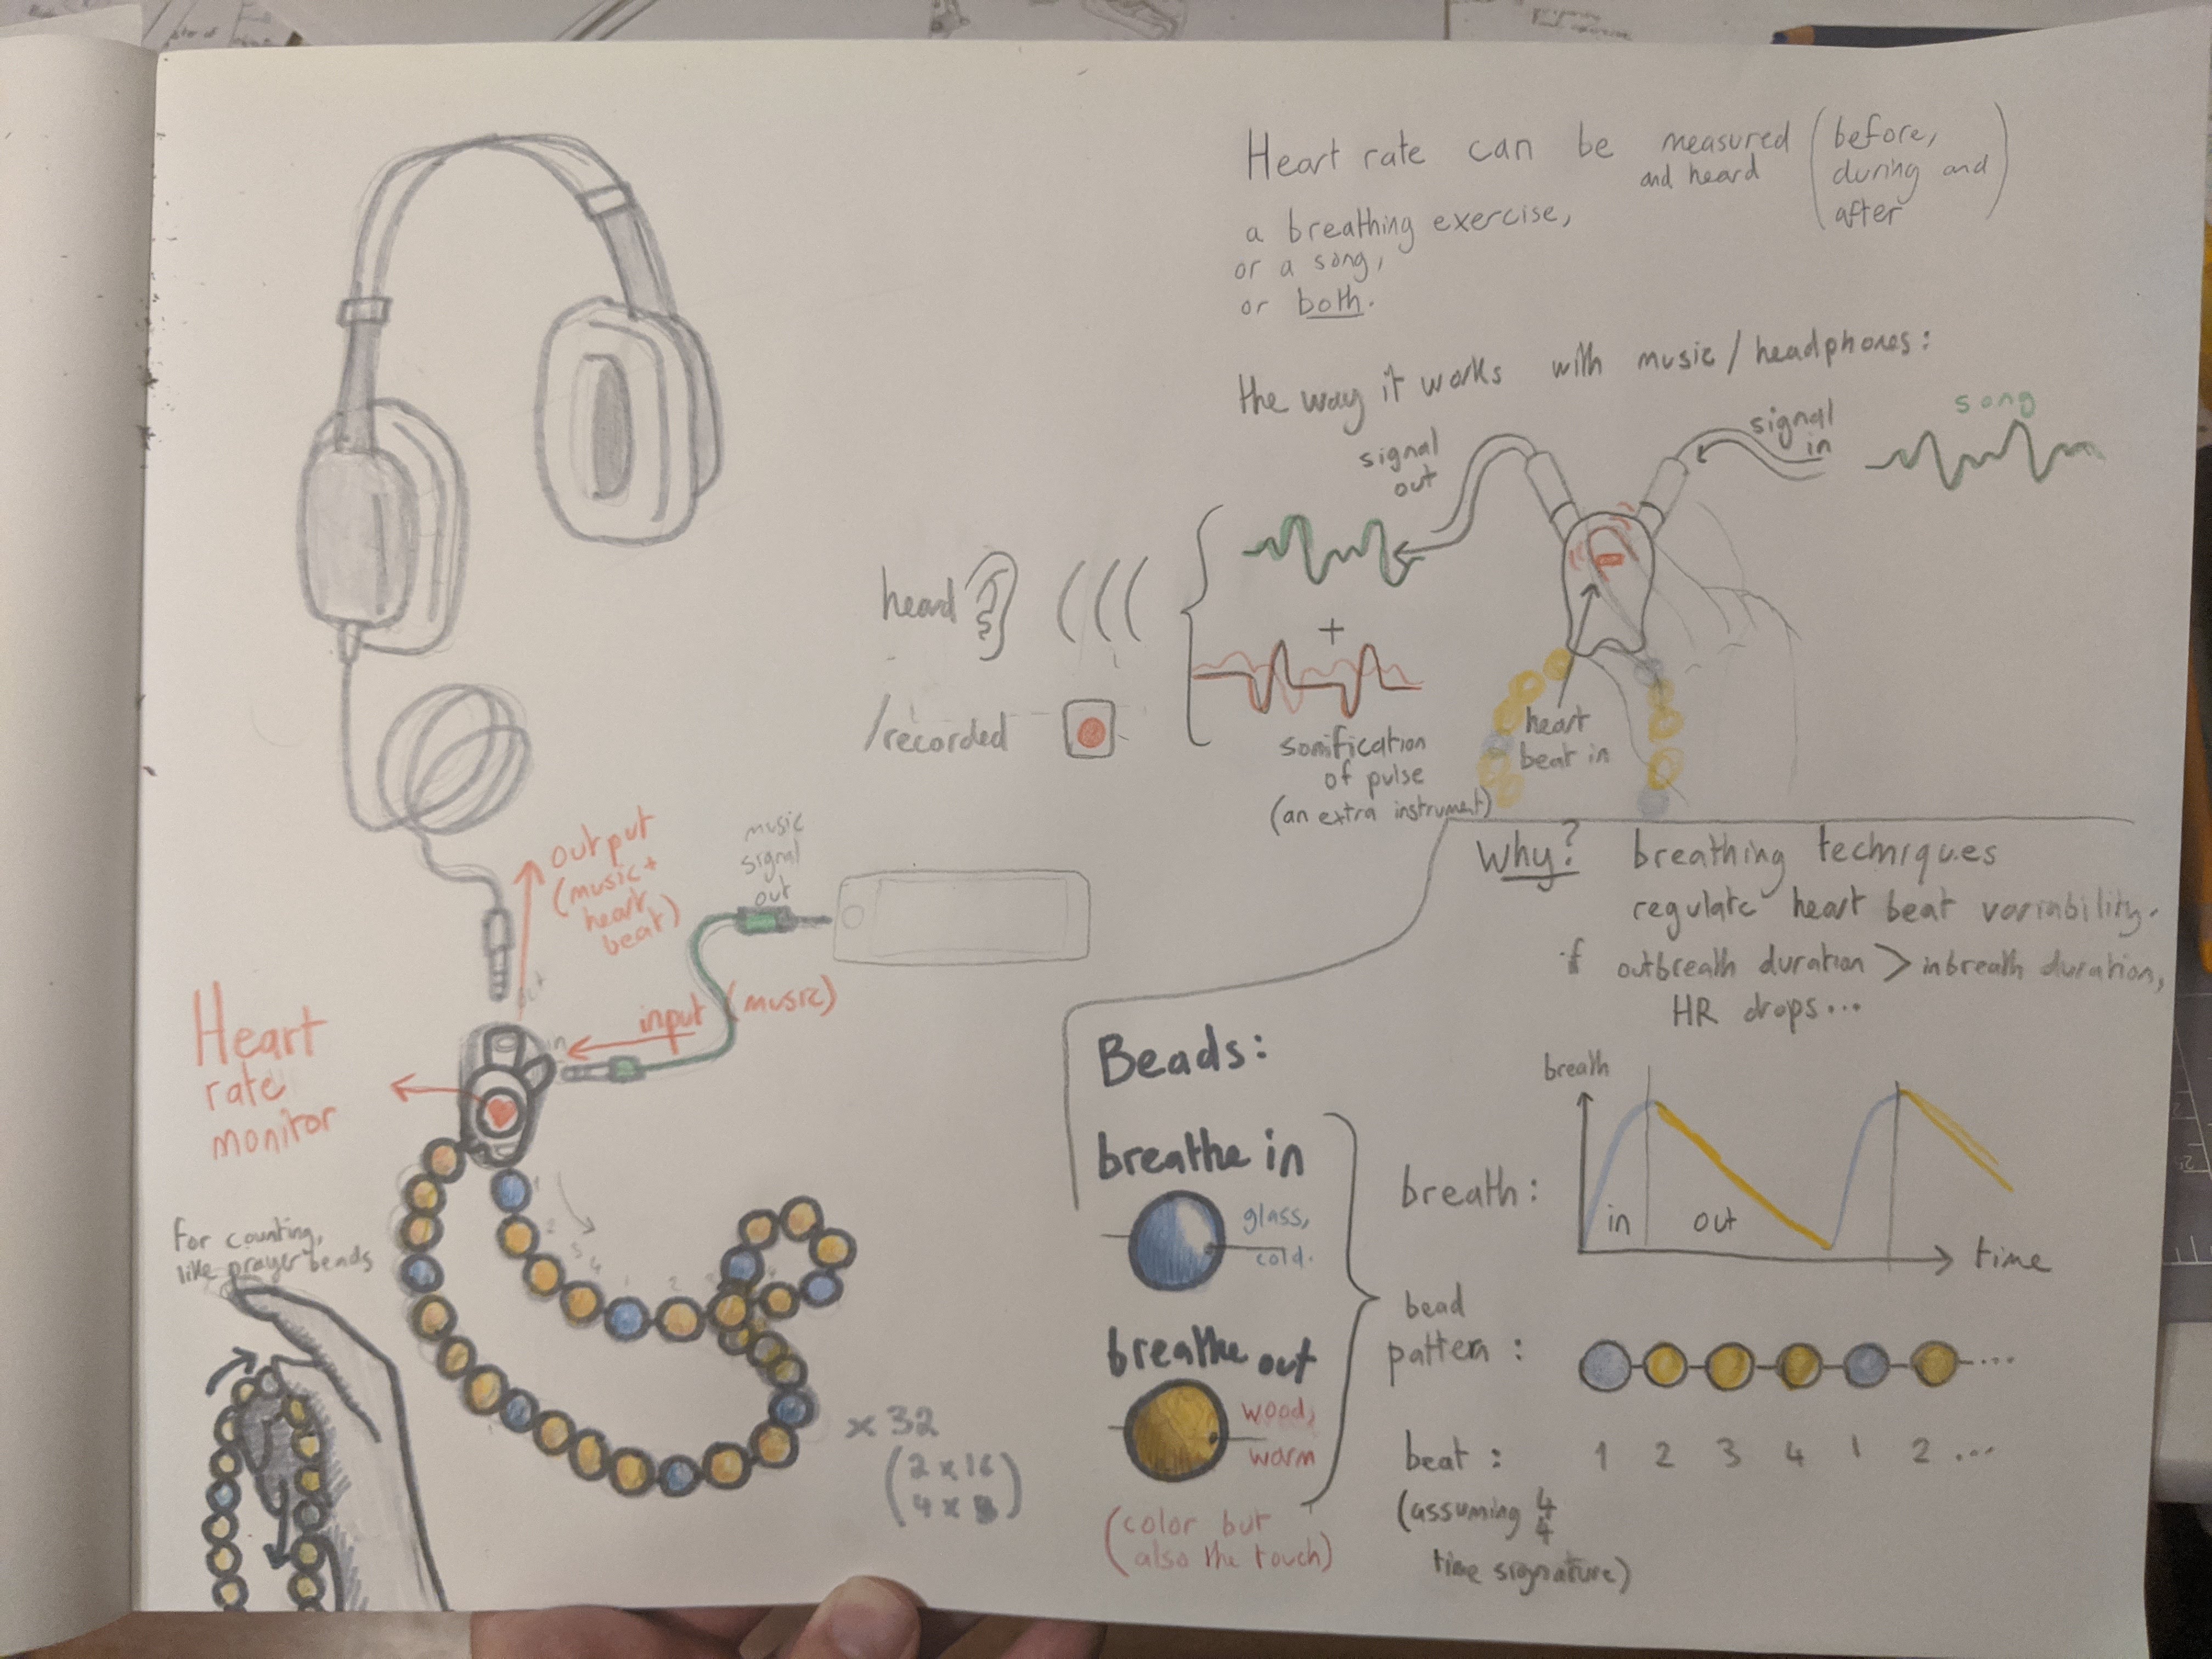 Heart rate can be measured and heard (before, during and after)
a breathing exercise,
or a song,
or both.
the way it works with music / headphones:
signal
out
signal
in
song
heard
/recorded
+
sonification
of pulse
(an extra instrument)
heart
beat in
output
(music +
heart
beat)
music
signal
out
out
in
input (music)
Heart
rate
monitor
For counting,
like prayer beads
1
2
3
4
1
2
3
4
x 32
(2 x 16
4 x 8)
Why? breathing techniques
regulate heart beat variability.
if outbreath duration > inbreath duration,
HR drops...
Beads:
breathe in
glass,
cold.
breathe out
wood,
warm
(color but
also the touch)
breath
breath:
in
out
time
bead
pattern:
...
beat: 1 2 3 4 1 2 ...
(assuming 4/4
time signature)